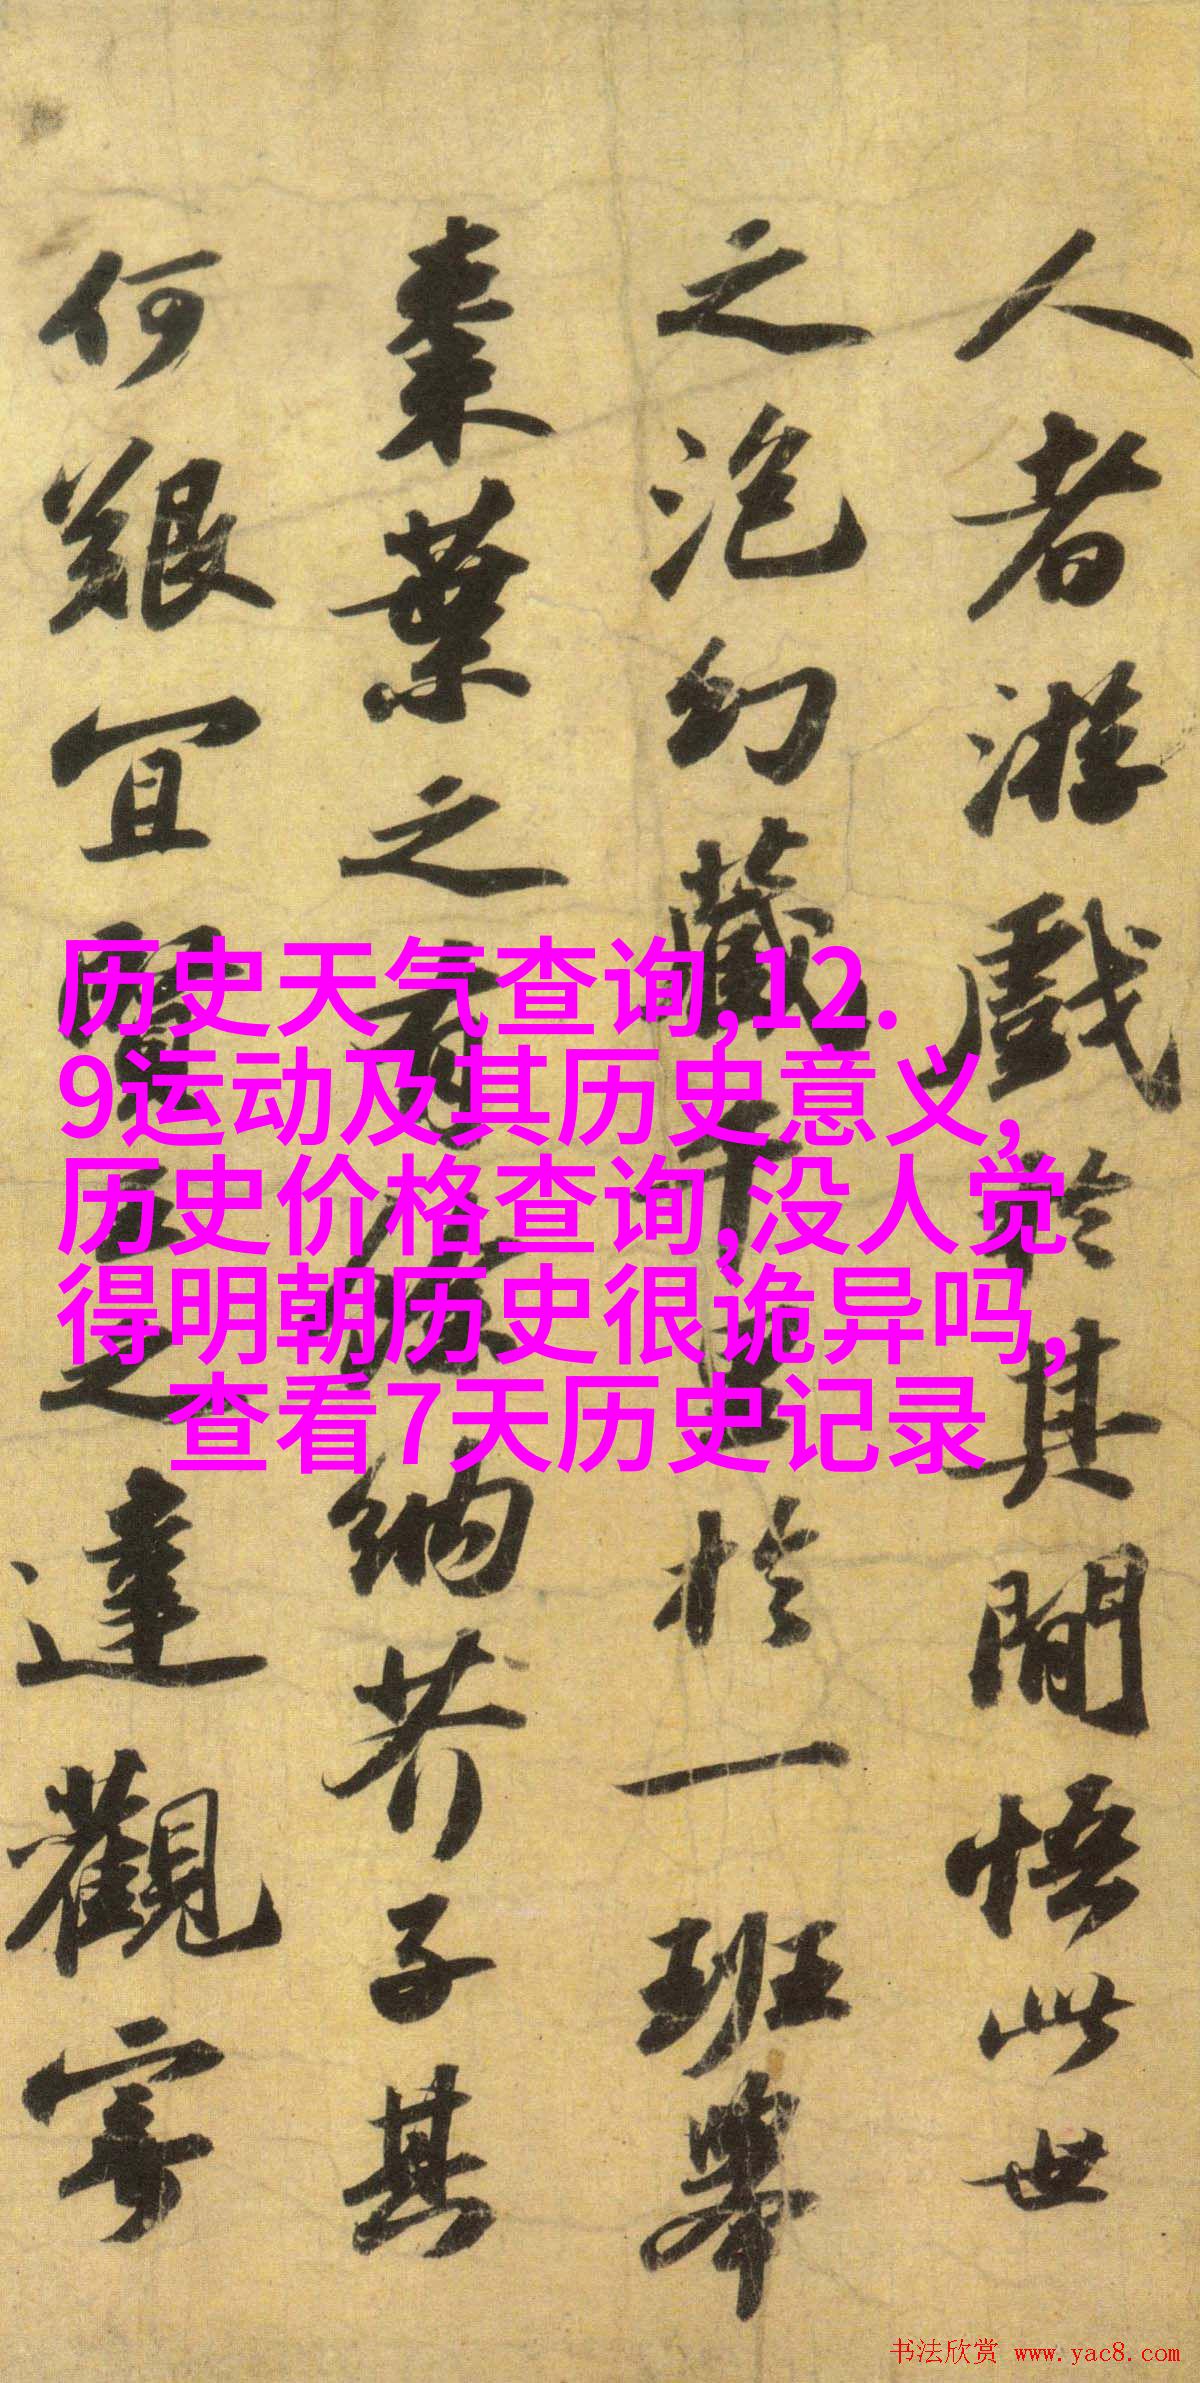 人者游戲於其間悟此世
之泡幻藏千里於一班舉
棗葉之有餘納芥子其
何艱宜賢王之達觀寄
历史天气查询,12.
9运动及其历史意义,
历史价格查询,没人觉
得明朝历史很诡异吗,
查看7天历史记录
书法欣赏 www.yac8.com